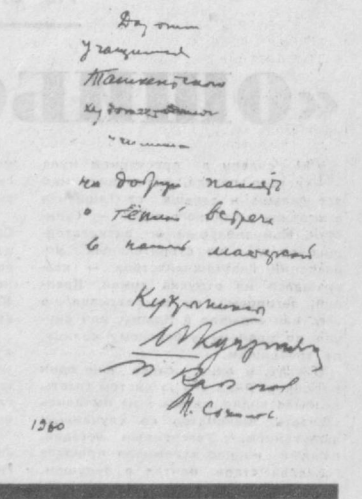 Дорогим
учащимся
Ташкентского
художественного
училища
на добрую память
о тёплой встрече
в нашей мастерской
Кукрыниксы
М. Куприянов
П. Крылов
Н. Соколов
1960